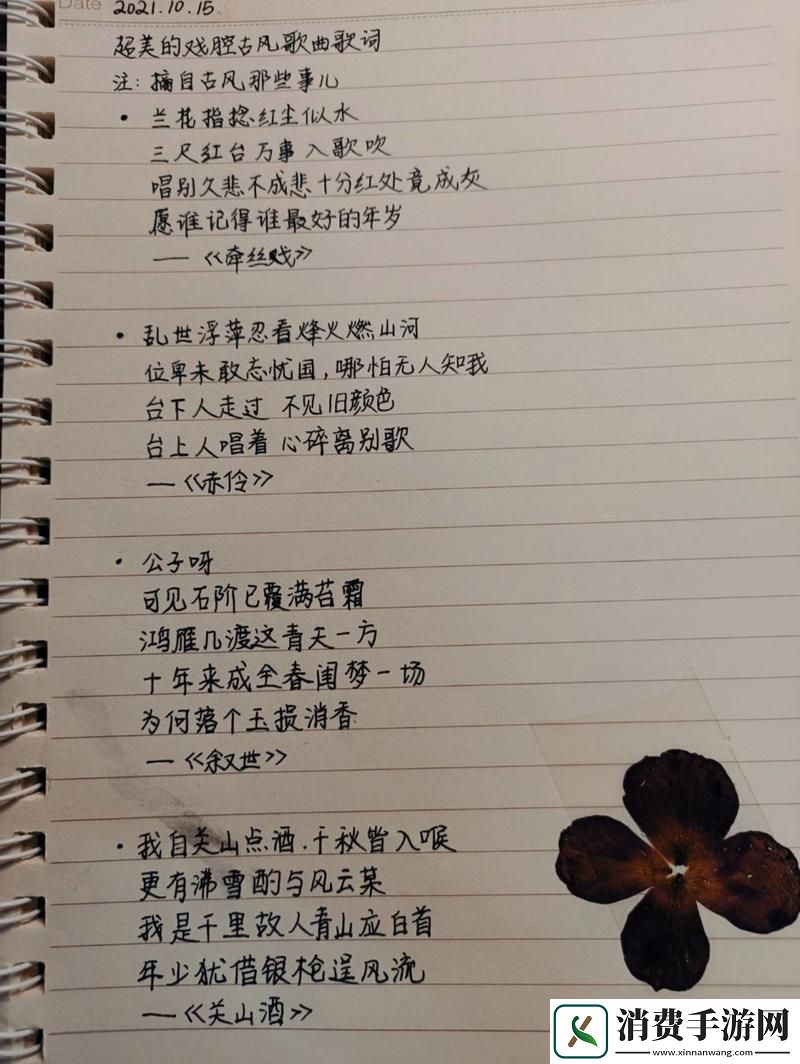 Date 2021.10.15
超美的戏腔古风歌曲歌词
注：摘自古风那些事儿
• 兰花指捻红尘似水
三尺红台 万事入歌吹
唱别久悲不成悲十分红处竟成灰
愿谁记得谁最好的年岁
—《牵丝戏》
• 乱世浮萍忍看烽火燃山河
位卑未敢忘忧国，哪怕无人知我
台下人走过 不见旧颜色
台上人唱着 心碎离别歌
—《赤伶》
• 公子呀
可见石阶已覆满苔霜
鸿雁几渡这青天一方
十年来成全春闺梦一场
为何落个玉损消香
—《叙世》
• 我自关山点酒．千秋皆入喉
更有沸雪酌与风云某
我是千里故人青山应白首
年少犹借银枪逞风流
—《关山酒》
消费手游网
www.xinnanwang.com